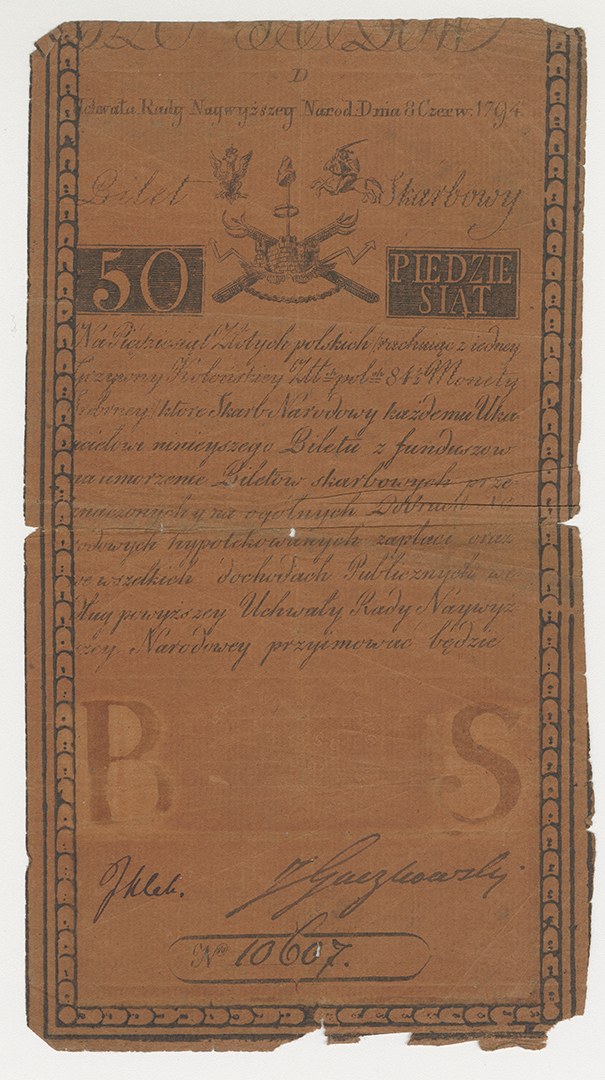 D
Uchwała Rady Naywyższey Narod. Dnia 8 Czerw. 1794.
Bilet Skarbowy
50 PIĘDZIE
SIĄT
Na Piędziesiąt Złotych polskich rachuiąc z iedney
Grzywny Kolońskiey Złł. pol. 84½ Monety
srebrney, które Skarb Narodowy każdemu Uka
zicielowi ninieyszego Biletu z funduszow
na umorzenie Biletow skarbowych prze
znaczonych y na ogolnych Dobrach Na
rodowych hypotekowanych zapłaci oraz
we wszelkich dochodach Publicznych we
dług powyższey Uchwały Rady Naywyż
szey Narodowey przyimować będzie
R S
N° 10607.